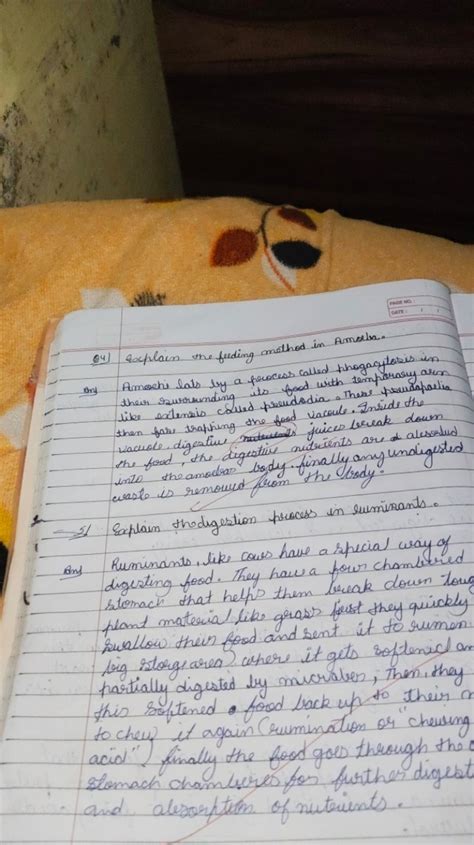 PAGE NO.:
DATE: / /
Q4) Explain the feeding method in Amoeba.
Ans Amoeba eats by a process called phagocytosis in
their surrounding its food with temporary arm
like extensis called pseudodia. These
then fuse trapping the food vacoule. Inside the
vacuole, digestive juices break down
the food, the digestive nutrients are absorbed
into the amoebas body. finally any undigested
waste is removed from the body.
5) Explain the digestion process in ruminants.
Ans Ruminants, like cows have a special way of
digesting food. They have a four chambered
stomach that helps them break down
plant material like grass first they quickly
swallow their food and sent it to rumen
big storge area) where it gets softenicl an
partially digested by microbes, Then, they
this softened food back up to their
to chew it again (rumination or "chewing
acid". finally the food goes through the
stomach chambers for further digest
and absorption of nutrients.